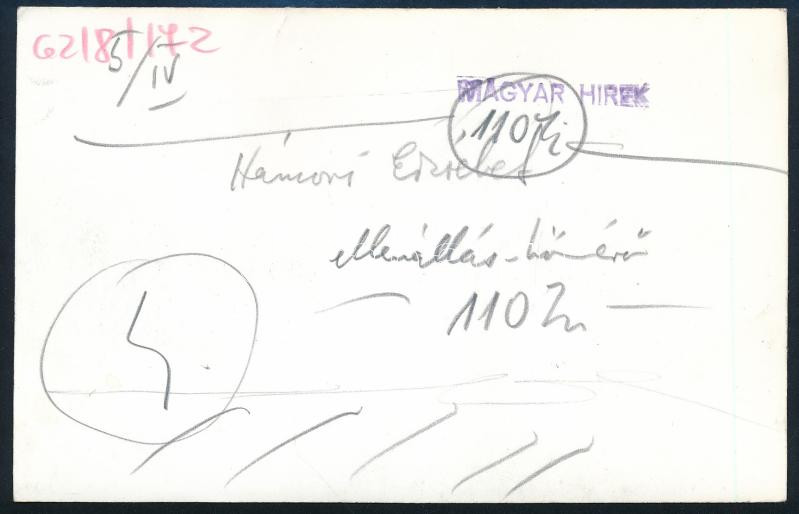 62/8/172
5/IV
MAGYAR HIREK
110
Hámori Erzsébet
ellenállás-hőmérő
110